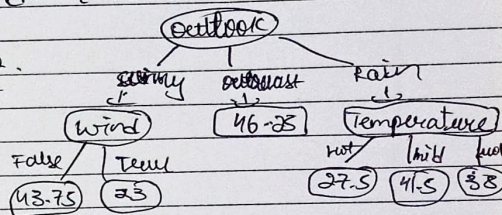 Outlook
sunny overcast Rain
Wind 46-25 Temperature
False True Hot mild
43.75 23 27.5 41.5 38